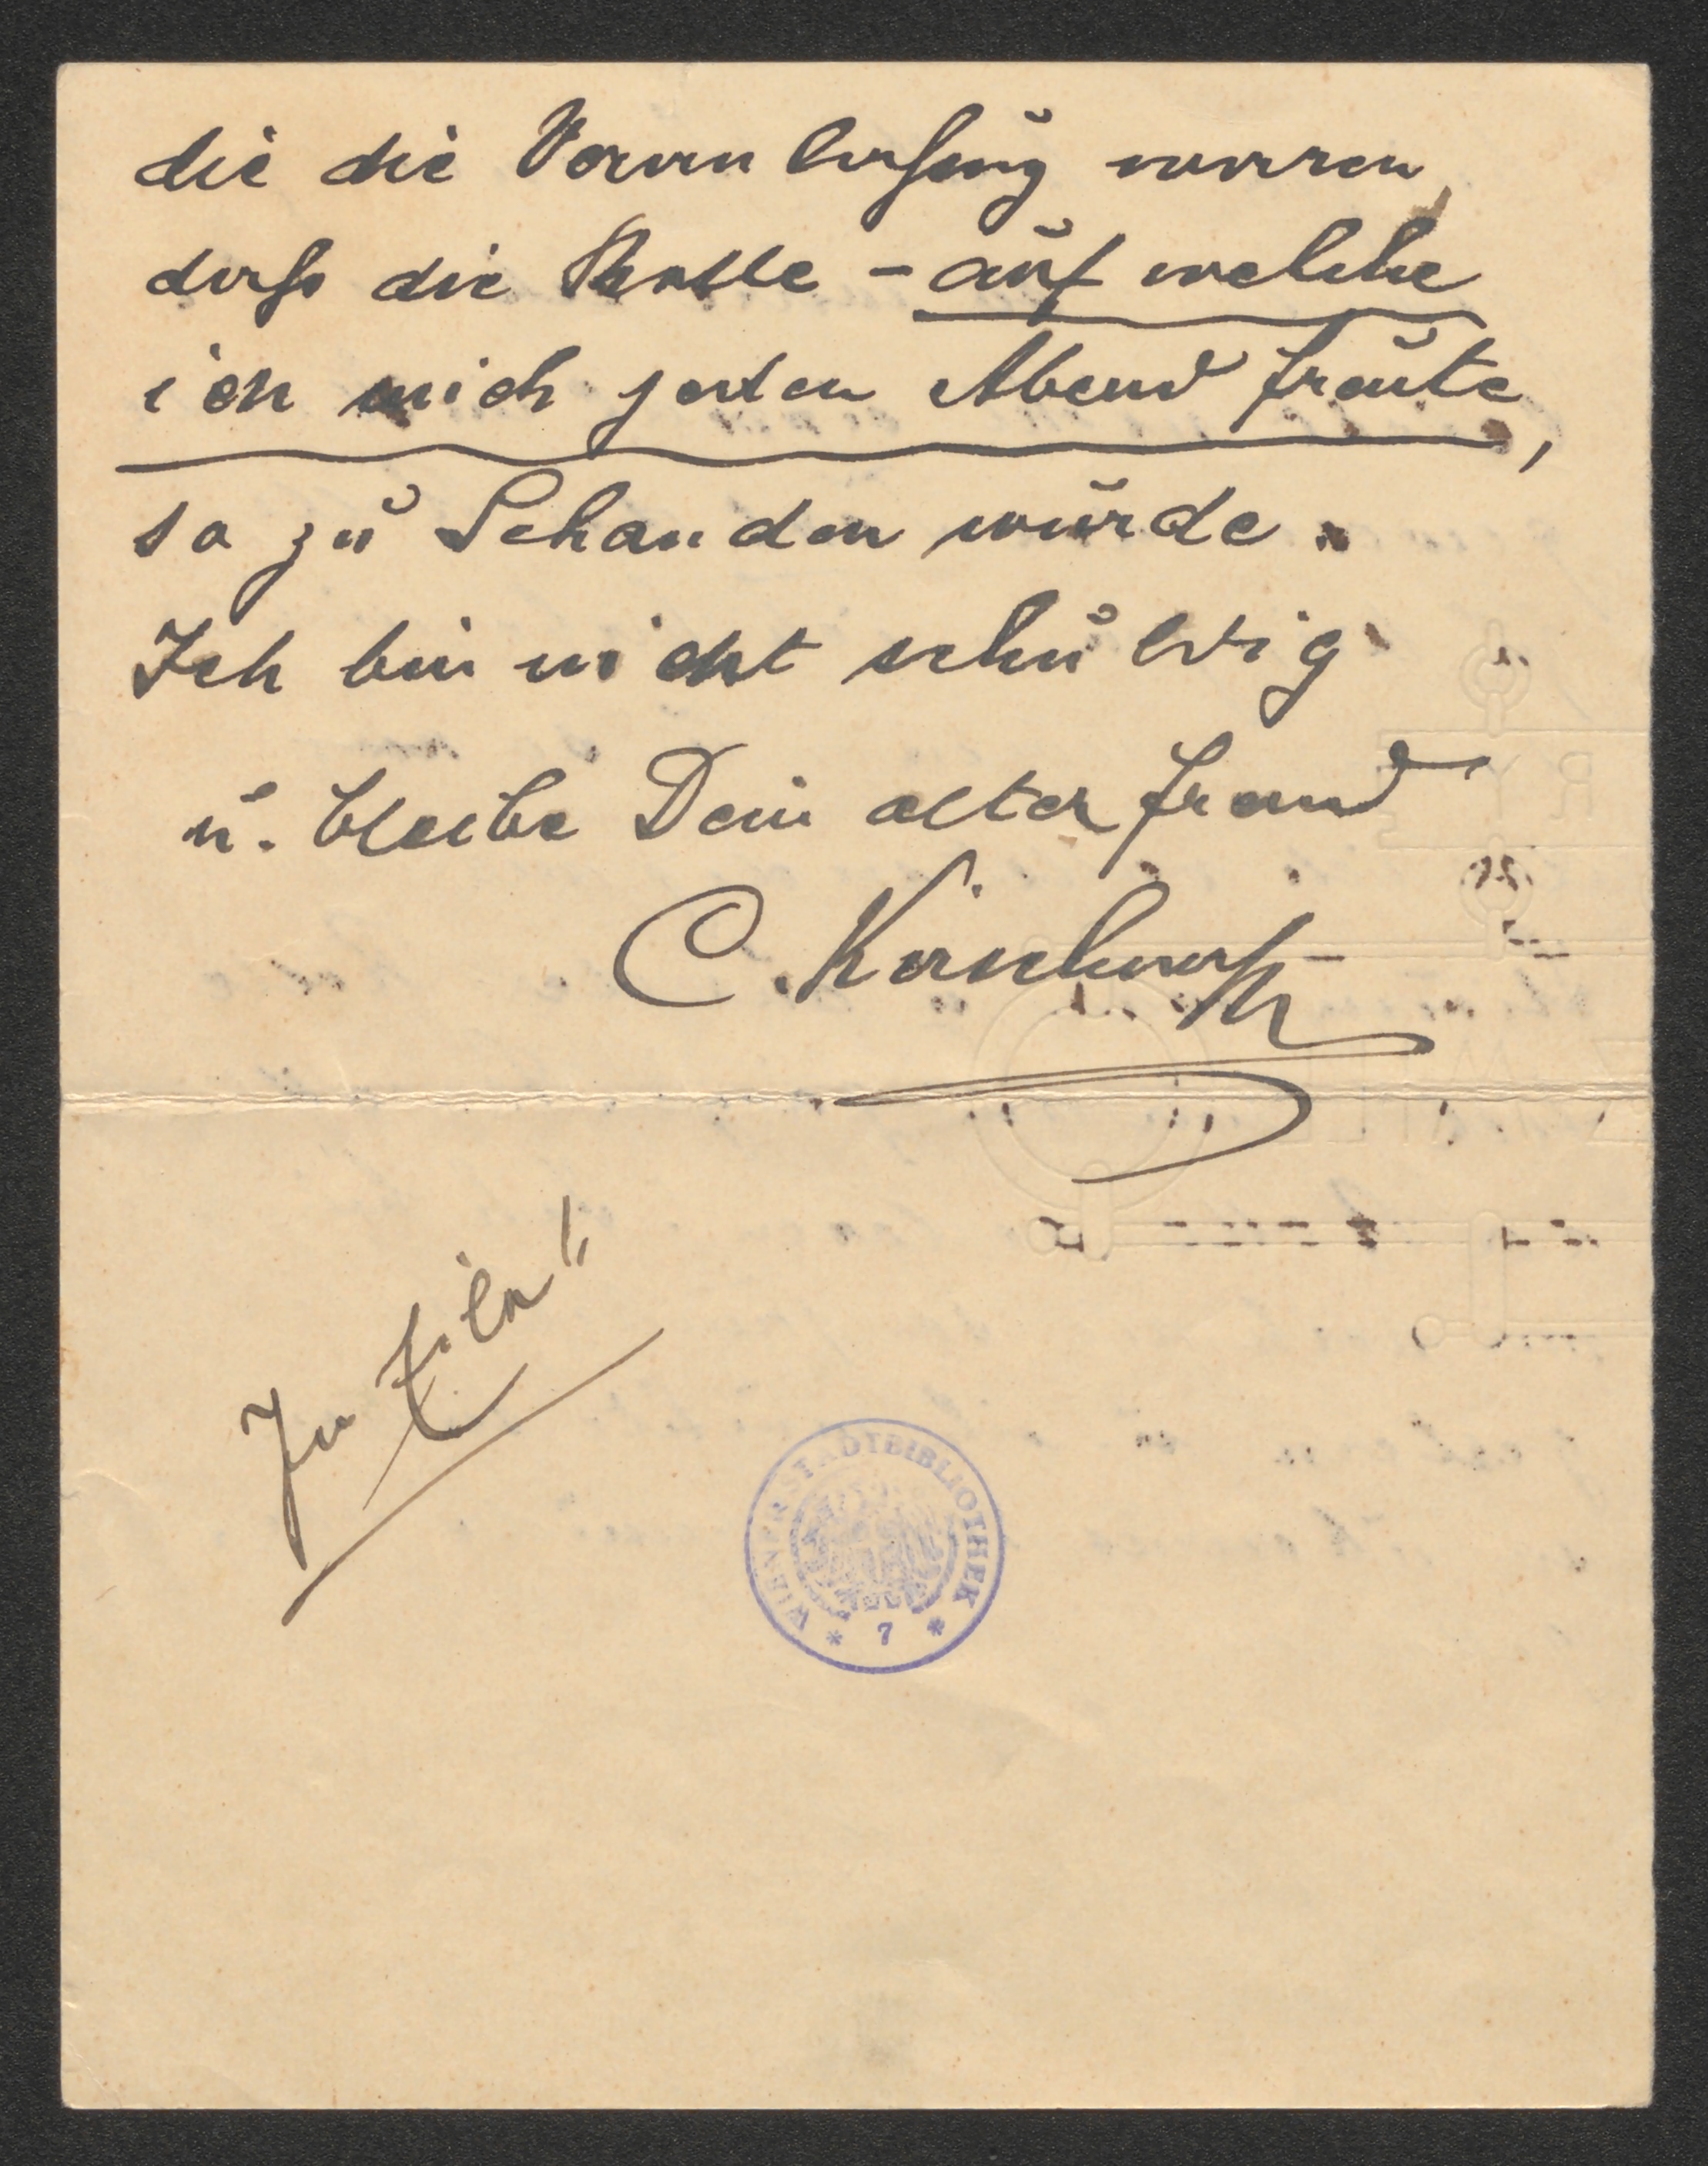 die die Veranlaßung waren,
daß die Rolle - auf welche
ich mich jeden Abend freute,
so zu Schanden wurde.
Ich bin nicht schuldig
u. bleibe Dein alter Freund
C.
In Eile!!
WIENER STADTBIBLIOTHEK
* 7 *